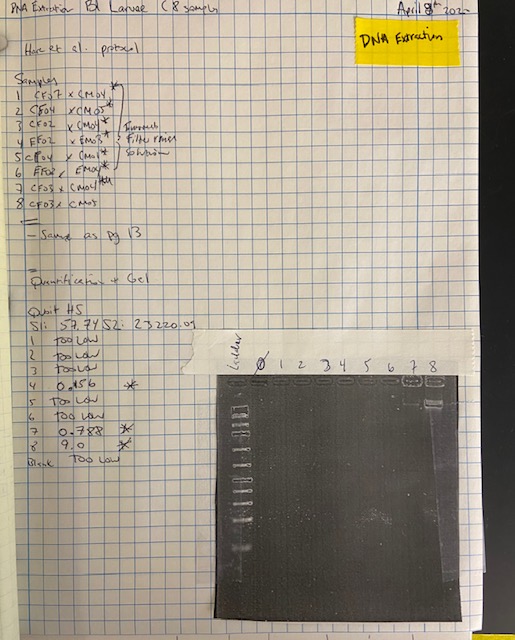 DNA Extraction Larvae (8 samples
April 8th
DNA Extraction
et al. protocol
Samples
1 CF07 x CM04 *
2 CF04 x CM05 *
3 CF02 x CM04 *
4 EF02 x EM03 *
5 CF04 x CM01 *
6 EF02 x EM04 *
Filter
solution
7 CF03 x CM04
8 CF03 x CM05
- Same as pg 13
Quantification + Gel
Qubit HS
S1: 57.74 S2: 23220.09
1 TOO LOW
2 TOO LOW
3 TOO LOW
4 0.156 *
5 TOO LOW
6 TOO LOW
7 0.788 *
8 9.0 *
Blank TOO LOW
Ladder 1 2 3 4 5 6 7 8